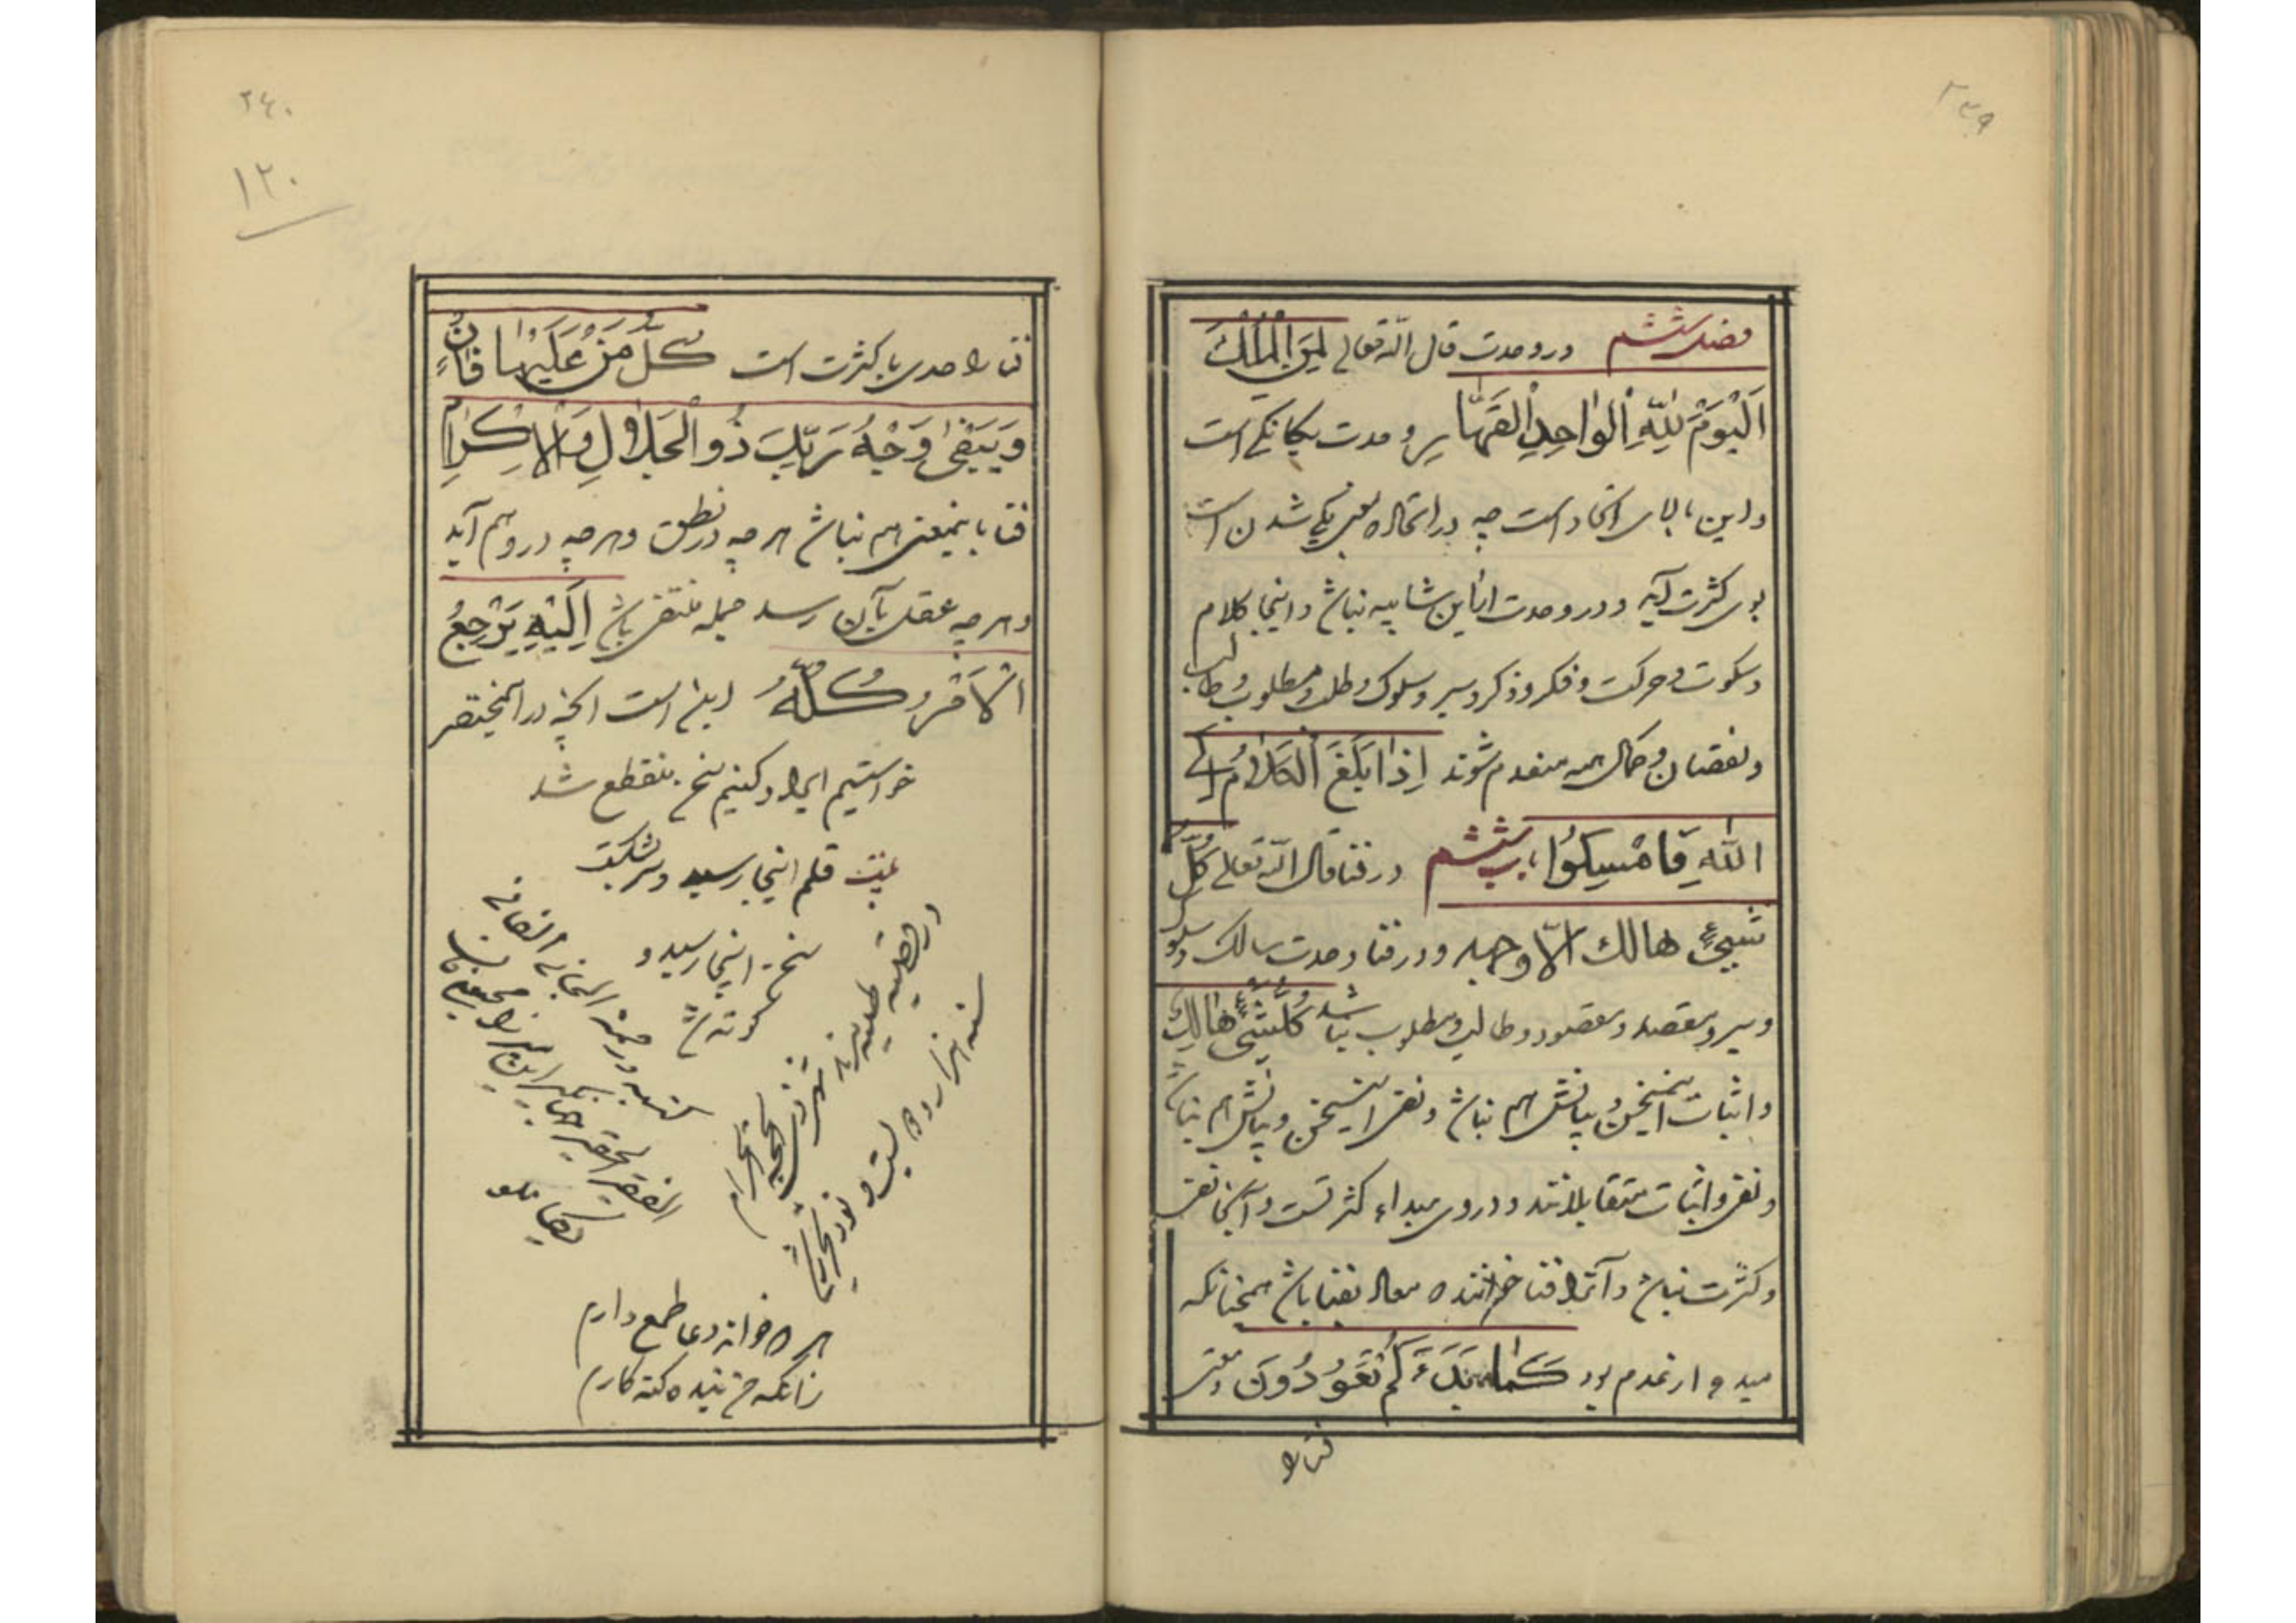 ٢٣٩
فصل ششم در وحدت قال الله تعالی لِمَنِ الْمُلْكُ
اَلْیَوْمَ لِلّٰهِ الْوٰاحِدِ الْقَهّٰار وحدت یکانکی است
و این بالای اتحاد است چه در اتحاد که معنی یکی شدن است
بوی کثرت آید و در وحدت از این شایبه نباشد و اینجا کلام
و سکوت و حرکت و فکر و ذکر و سیر و سلوک و طلب و مطلوب و طالب
و نقصان و کمال همه منعدم شوند اِذٰا بَلَغَ الْکَلاٰمُ اِلَی
اللهِ فَامْسِکُوا باب ششم در فنا قال الله تعالی کُلُّ
شَیْءٍ هالك الّا وجهه و در فنا وحدت سالک و سلوک
و سیر و مقصد و مقصود و طالب و مطلوب نباشد کُلُّشَیْءٍ هٰالِكٌ
و اثبات اینسخن و بیانش هم نباشد و نفی اینسخن و بیانش هم نباشد
و نفی و اثبات متقابلانند و دروی مبداء کثرتست و آنجا نفی
و کثرت نباشد و آنرا فنا خوانند که معاد بفنا باشد همچنانکه
مبدء از عدم بود کَمٰا بَدَءَکُمْ تَعُودُونَ و معنی
فنا را
٢٤٠
١٢٠
فنا را حدی با کثرت است کُلُّ مَنْ عَلَیْهٰا فٰانٍ
وَیَبْقیٰ وَجْهُ رَبِّكَ ذُو الْجَلاٰلِ وَالْاِکْرٰامِ
فنا باینمعنی هم نباشد هرچه در نطق و هرچه در وهم آید
و هرچه عقل بآن رسد جمله منتفی باشد اِلَیْهِ یَرْجِعُ
الْاَمْرُ کُلُّهُ اینست آنچه در اینمختصر
خواستیم ایراد کنیم سخن منقطع شد
بیت قلم اینجا رسید و سر بشکست
سخن اینجا رسید و
کوته شد
در قصبه طیبه نیریز
شهر ذی الحجة الحرام
سنه هزار و دویست و نود و
کتبه
الفقیر الحقیر
هر که خواند دعا طمع دارم
زانکه من بنده کنه کارم